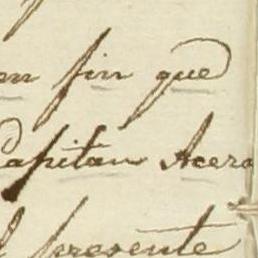 en fin que
Capitan Acero
l presente